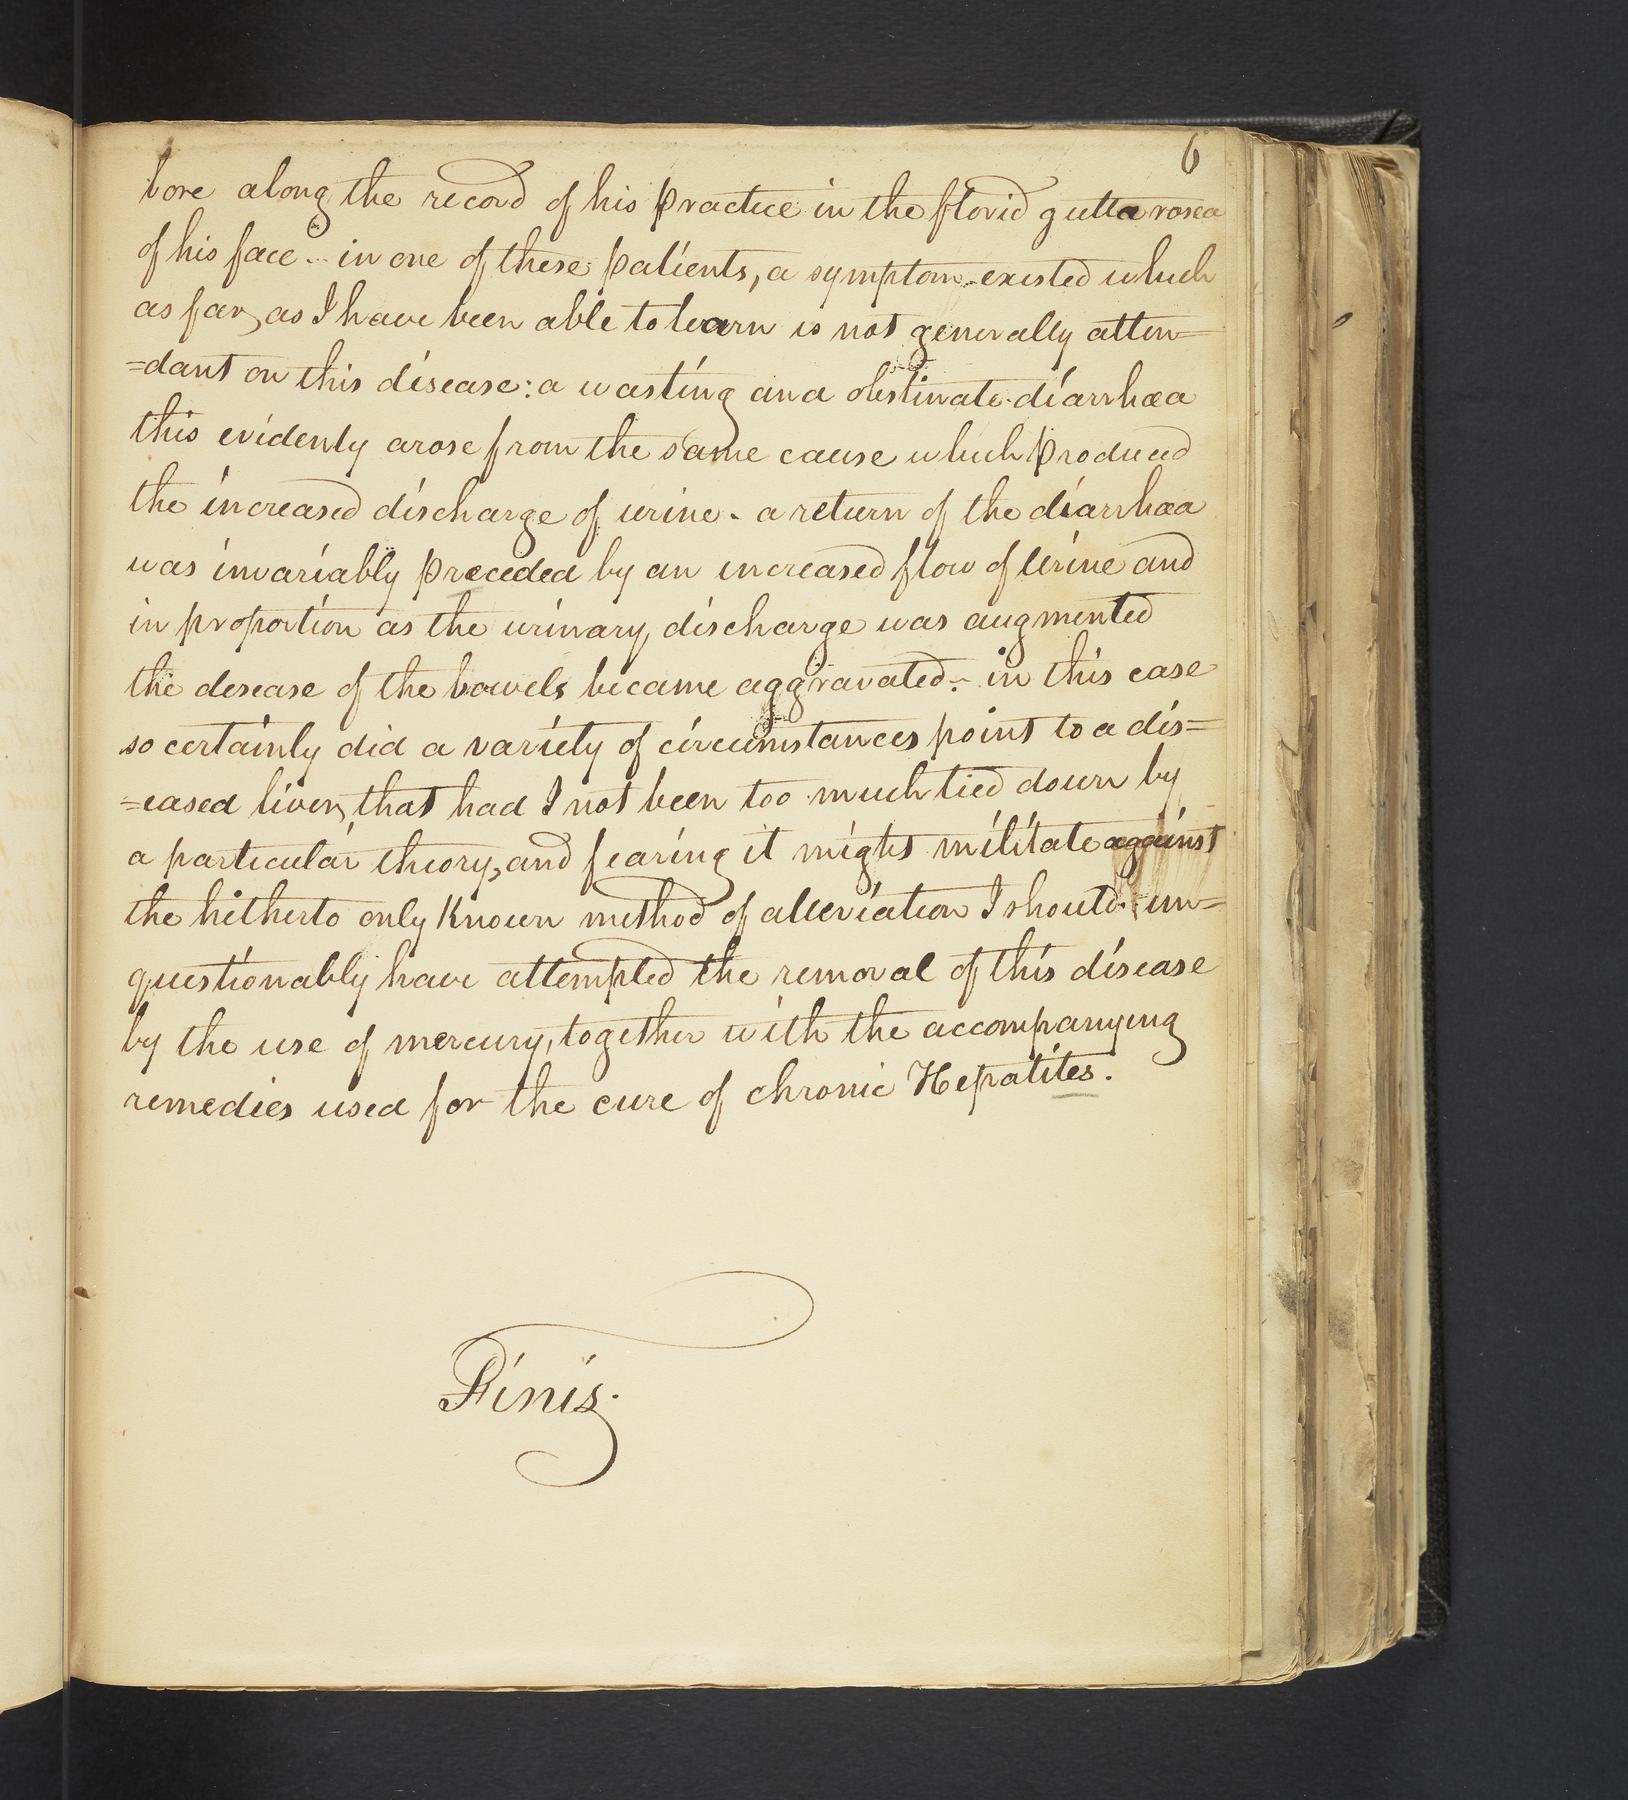 6
bore along the record of his practice in the florid gutta rosea
of his face - in one of these patients, a symptom existed which
as far, as I have been able to learn is not generally atten=
=dant on this disease: a wasting and obstinate diarrhæa
this evidenly arose from the same cause which produced
the increased discharge of urine - a return of the diarrhæa
was invariably preceded by an increased flow of Urine and
in proportion as the urinary discharge was augmented
the desease of the bowels became aggravated - in this case
so certainly did a variety of circumstances point to a dis=
=eased liver, that had I not been too much tied down by
a particular theory, and fearing it might militate against
the hitherto only known method of alleviation I should un=
questionably have attempted the removal of this disease
by the use of mercury, together with the accompanying
remedies used for the cure of chronic Hepatites.
Finis.